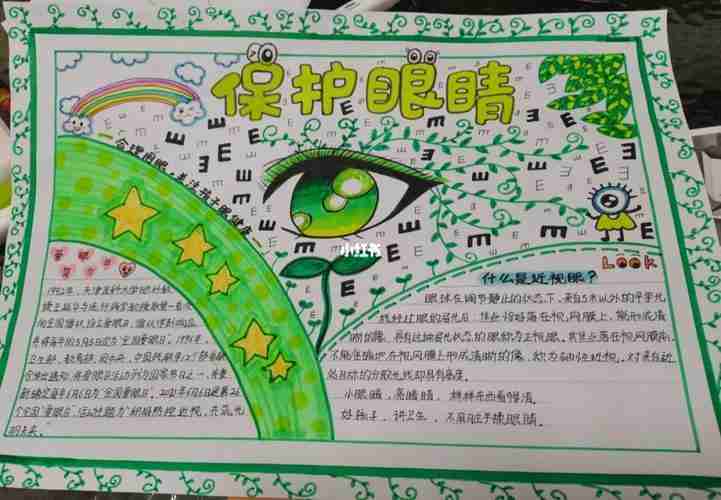 保护眼睛
合理用眼,关注孩子眼健康
小红书
LOOK
什么是近视眼?
眼球在调节静止的状态下,来自5米以外的平行光
线经过眼的屈光后,焦点恰好落在视网膜上,能形成清
晰的像,具有这种屈光状态的眼称为正视眼,若焦点落在视网膜前,
不能准确地在视网膜上形成清晰的像,称为轴性近视,对来自近
处目标的分散光线却具有高度。
小眼睛,亮晶晶,样样东西看得清。
好孩子,讲卫生,不用脏手揉眼睛。
爱眼日
1992年,天津医科大学眼科教
授王延华与流行病学教授耿贯一首次
向全国倡议,设立爱眼日,倡议得到响应,
并将每年的5月5日定为"全国爱眼日"。1996年,
卫生部、教育部、团中央、中国残联等12个部委联
合发出通知,将爱眼日活动列为国家节日之一,并重
新确定每年6月6日为"全国爱眼日"。2021年6月6日是第26
个全国"爱眼日",活动主题为"积极防控近视,共筑光
明未来。"